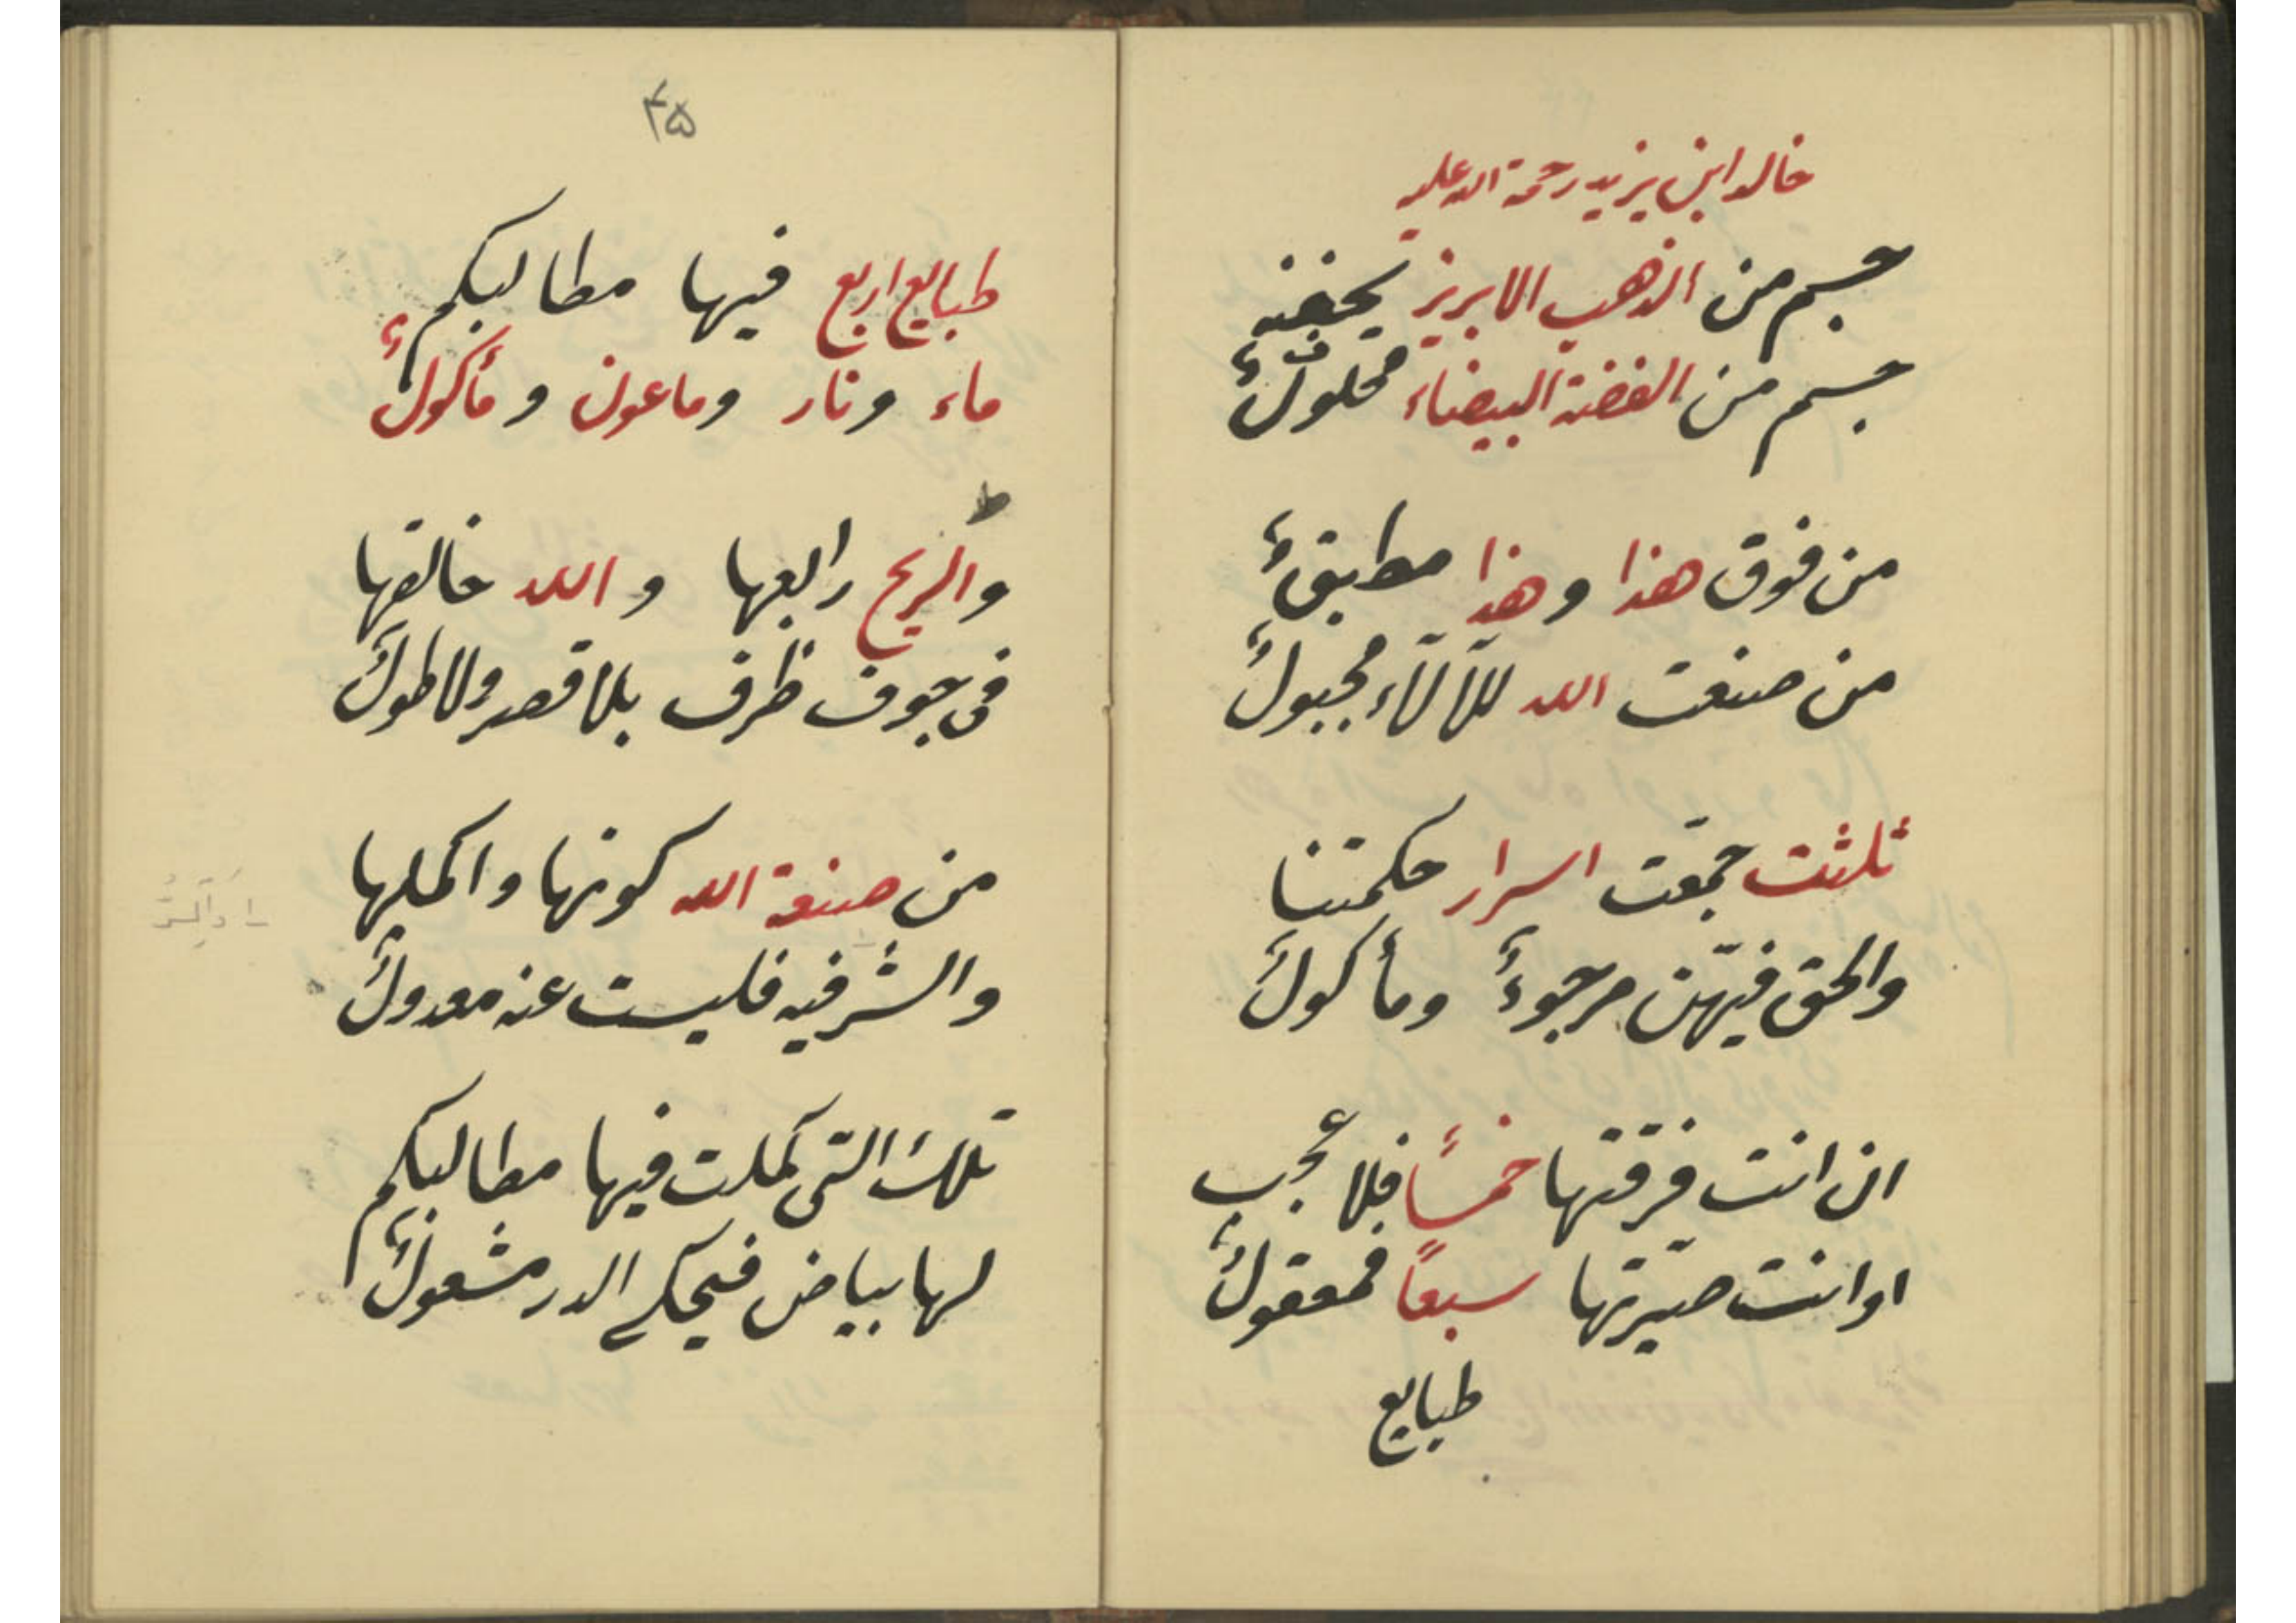 خالد ابن يزيد رحمة الله عليه
جسم من الذهب الابريز
جسم من الفضة البيضاء محلولٌ
من فوق هذا وهذا مطبقٌ
من صنعت الله للآلاء مجبولٌ
ثلثت جمعت اسرار حكمتنا
والحق فيهن مرجوءٌ ومأكولٌ
ان انت فرقتها خمساً فلا عجب
او انت صيّرتها سبعاً فمعقولٌ
طبايع
۴۵
طبايع اربع فيها مطالبكم
ماء ونار وماعون ومأكولٌ
ط
والريح رابعها والله خالقها
فى جوف ظرف بلا قصر ولا طولٌ
من صنعة الله كونها واكملها
والشر فيه فليست عنه معدولٌ
تلك التى كملت فيها مطالبكم
لها بياض فيحكى الدر مشعولٌ